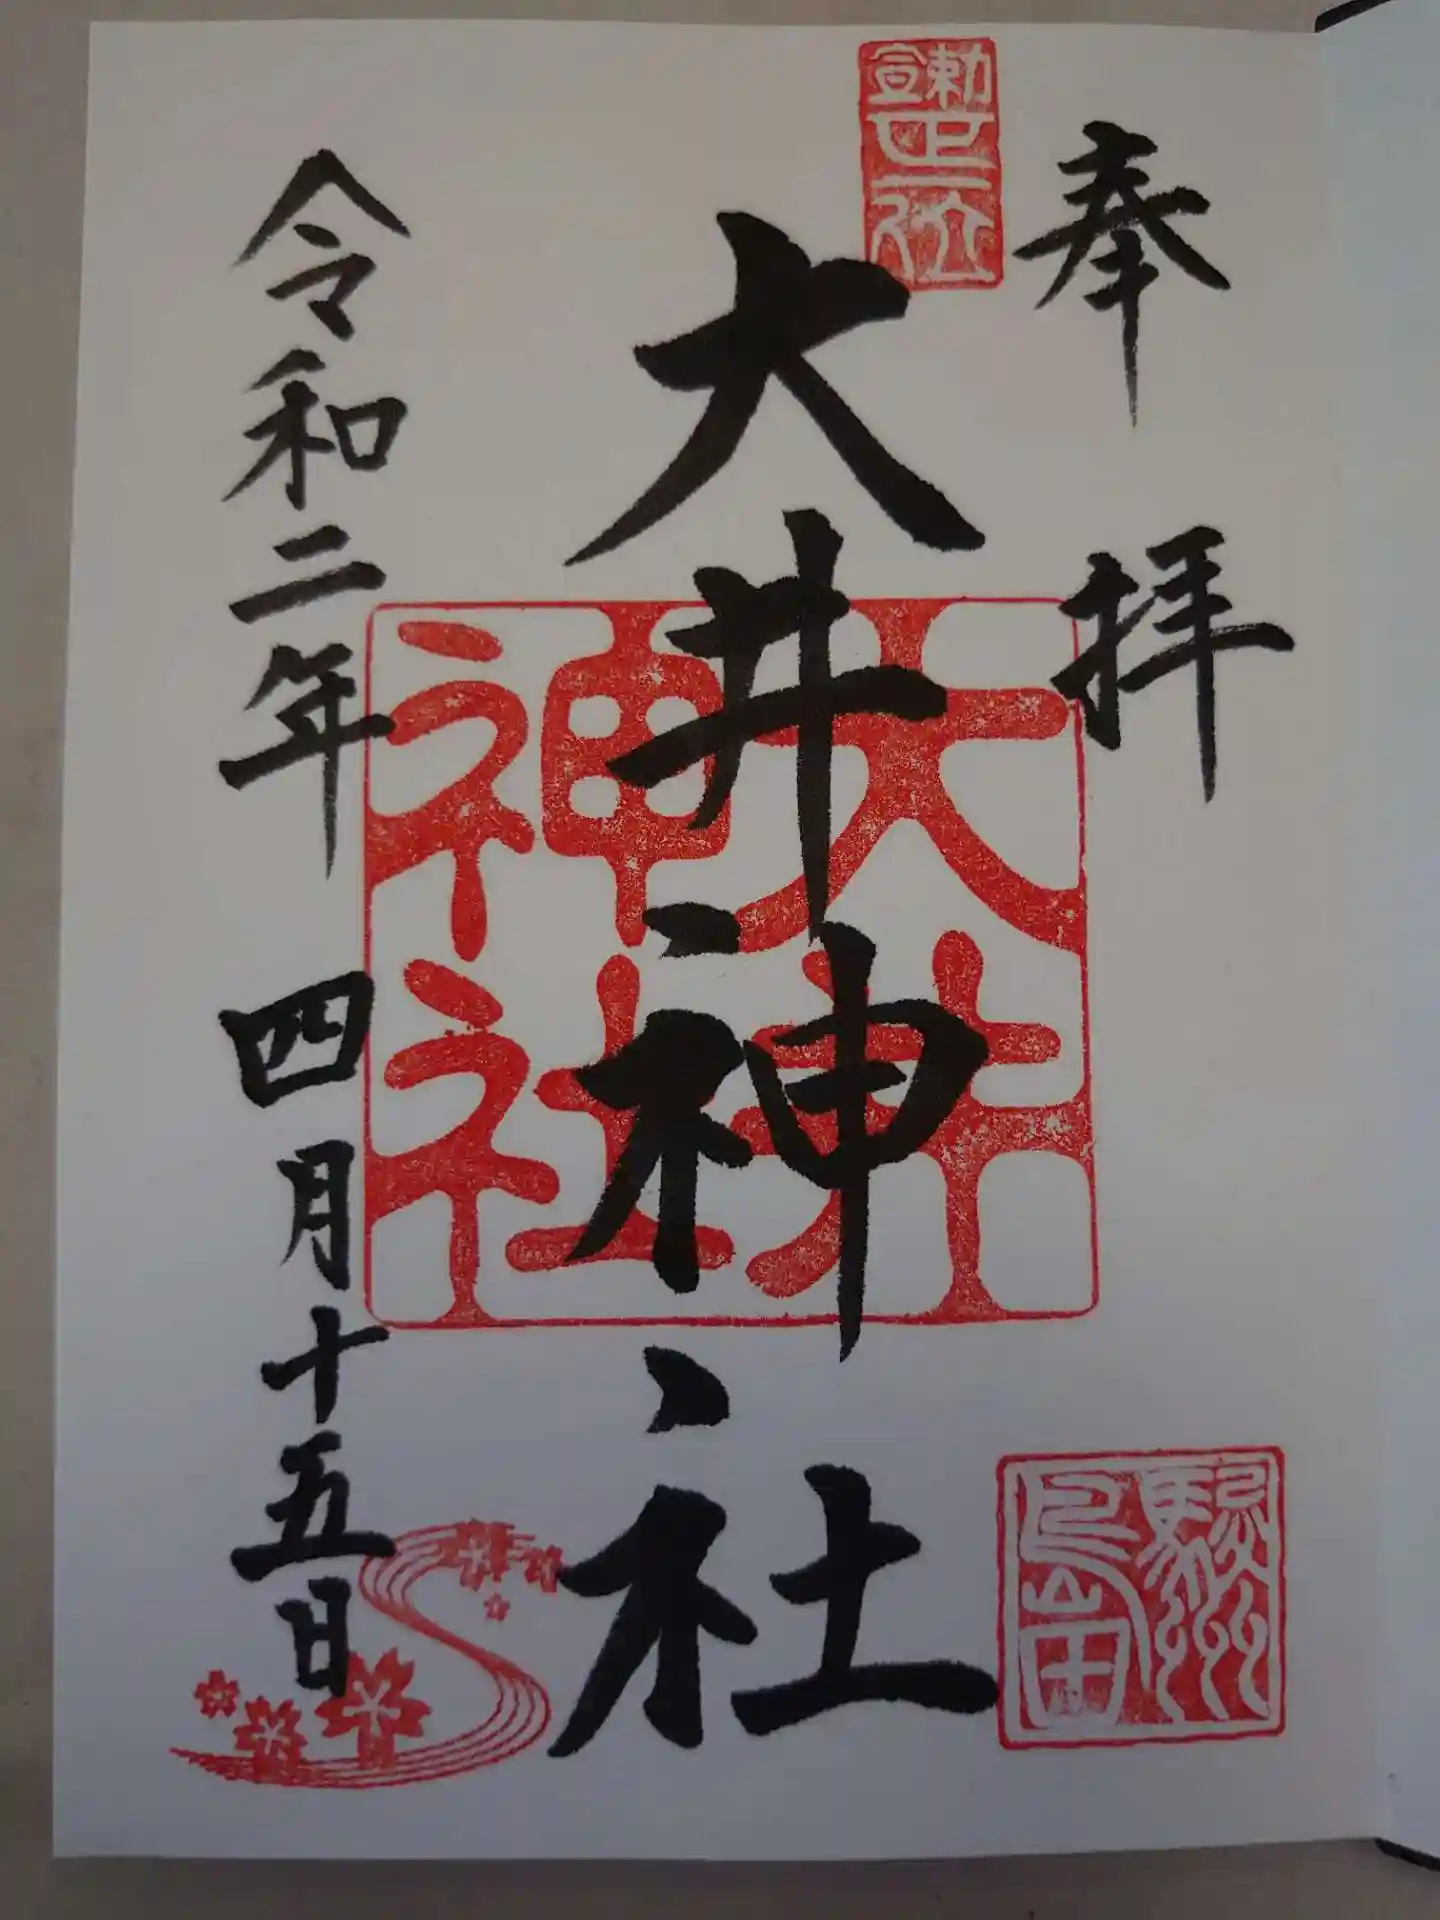 奉拝
勅宣
正一位
大井神社
大井神社
駿州
島田
令和二年四月十五日